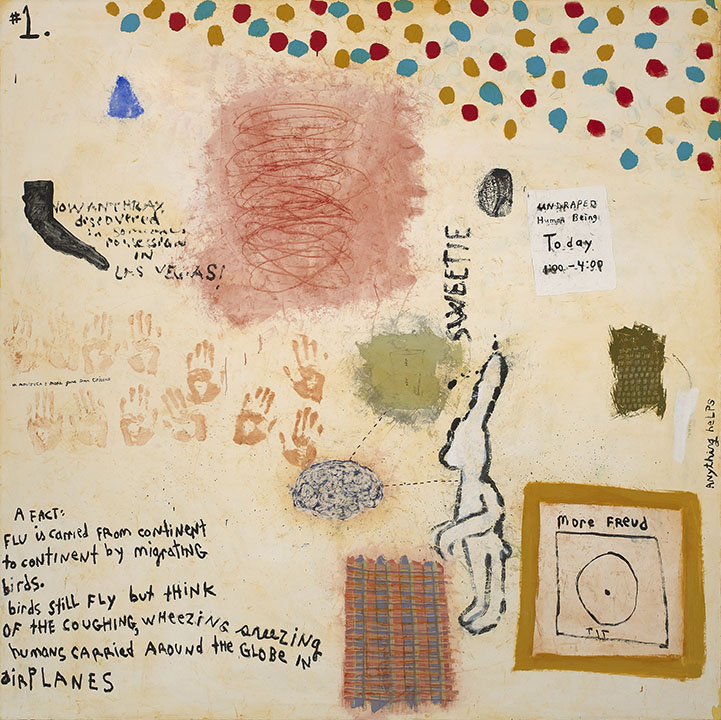 #1.
NOW ANTHRAX
discovered
in someones
POSSESSION
IN
LAS VEGAS!
SWEETIE
UNDRAPED
Human Being
Today
1:00 - 4:00
Anything helps
A FACT:
FLU is carried from continent
to continent by migrating
birds.
birds still fly but think
OF THE COUGHING, wheezing sneezing
humans carried Around the GLOBE IN
AIRPLANES
More Freud
TIT